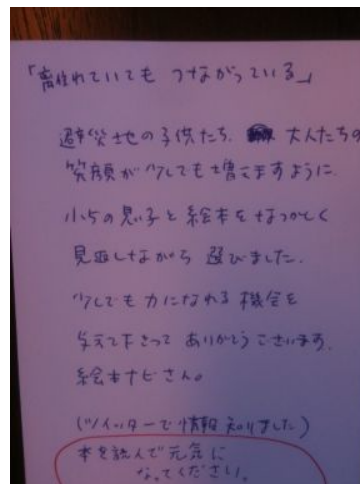 「離れていても つながっている」
避災地の子供たち、大人たちの
笑顔が少しでも増えますように。
小5の息子と絵本をなつかしく
見返しながら 選びました。
少しでも力になれる機会を
与えて下さって ありがとうございます。
絵本ナビさん。
(ツイッターで情報知りました)
本を読んで元気に
なってください。